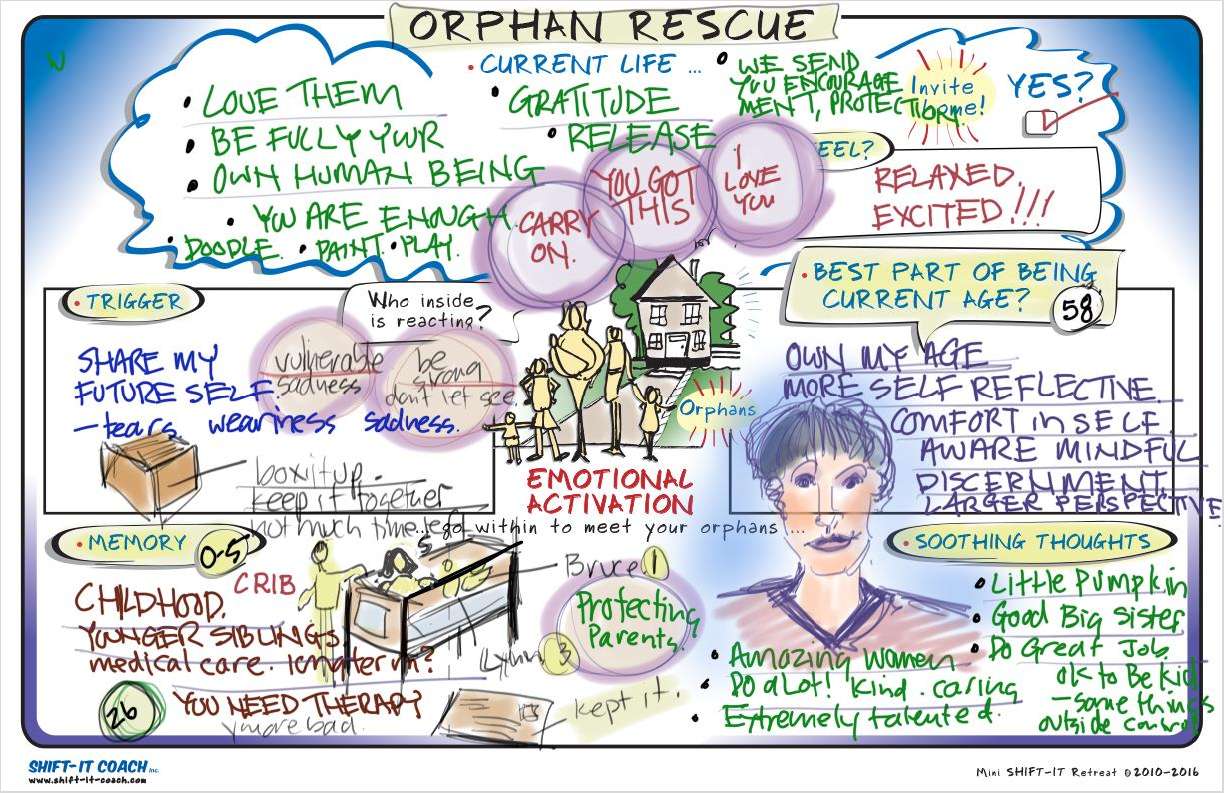 ORPHAN RESCUE
• CURRENT LIFE ...
• LOVE THEM
• BE FULLY YOUR
• OWN HUMAN BEING
• YOU ARE ENOUGH.
• DOODLE. • PAINT. • PLAY.
• GRATITUDE
• RELEASE
• WE SEND
YOU ENCOURAGE
MENT, PROTECTION.
Invite
home!
YES?
CARRY
ON.
YOU GOT
THIS
I
LOVE
YOU
EEL?
RELAXED.
EXCITED!!!
• TRIGGER
Who inside
is reacting?
SHARE MY
FUTURE SELF.
– tears weariness sadness.
vulnerable
sadness
be
strong
don't let see.
box it up.
keep it together
not much time left
Orphans
EMOTIONAL
ACTIVATION
go within to meet your orphans ...
• BEST PART OF BEING
CURRENT AGE?
58
OWN MY AGE
MORE SELF REFLECTIVE.
COMFORT in SELF.
AWARE MINDFUL
DISCERNMENT.
LARGER PERSPECTIVE
• MEMORY
0-5
CRIB
CHILDHOOD.
YOUNGER SIBLINGS
medical care.
26
YOU NEED THERAPY
you're bad.
Bruce 1
Lynn 3
Protecting
Parents.
kept it.
• SOOTHING THOUGHTS
• Little Pumpkin
• Good Big Sister
• Do Great Job.
ok to Be kid
– some things
outside control
• Amazing Women
• Do a Lot! Kind. caring
• Extremely talented.
SHIFT-IT COACH inc.
www.shift-it-coach.com
Mini SHIFT-IT Retreat ©2010-2016